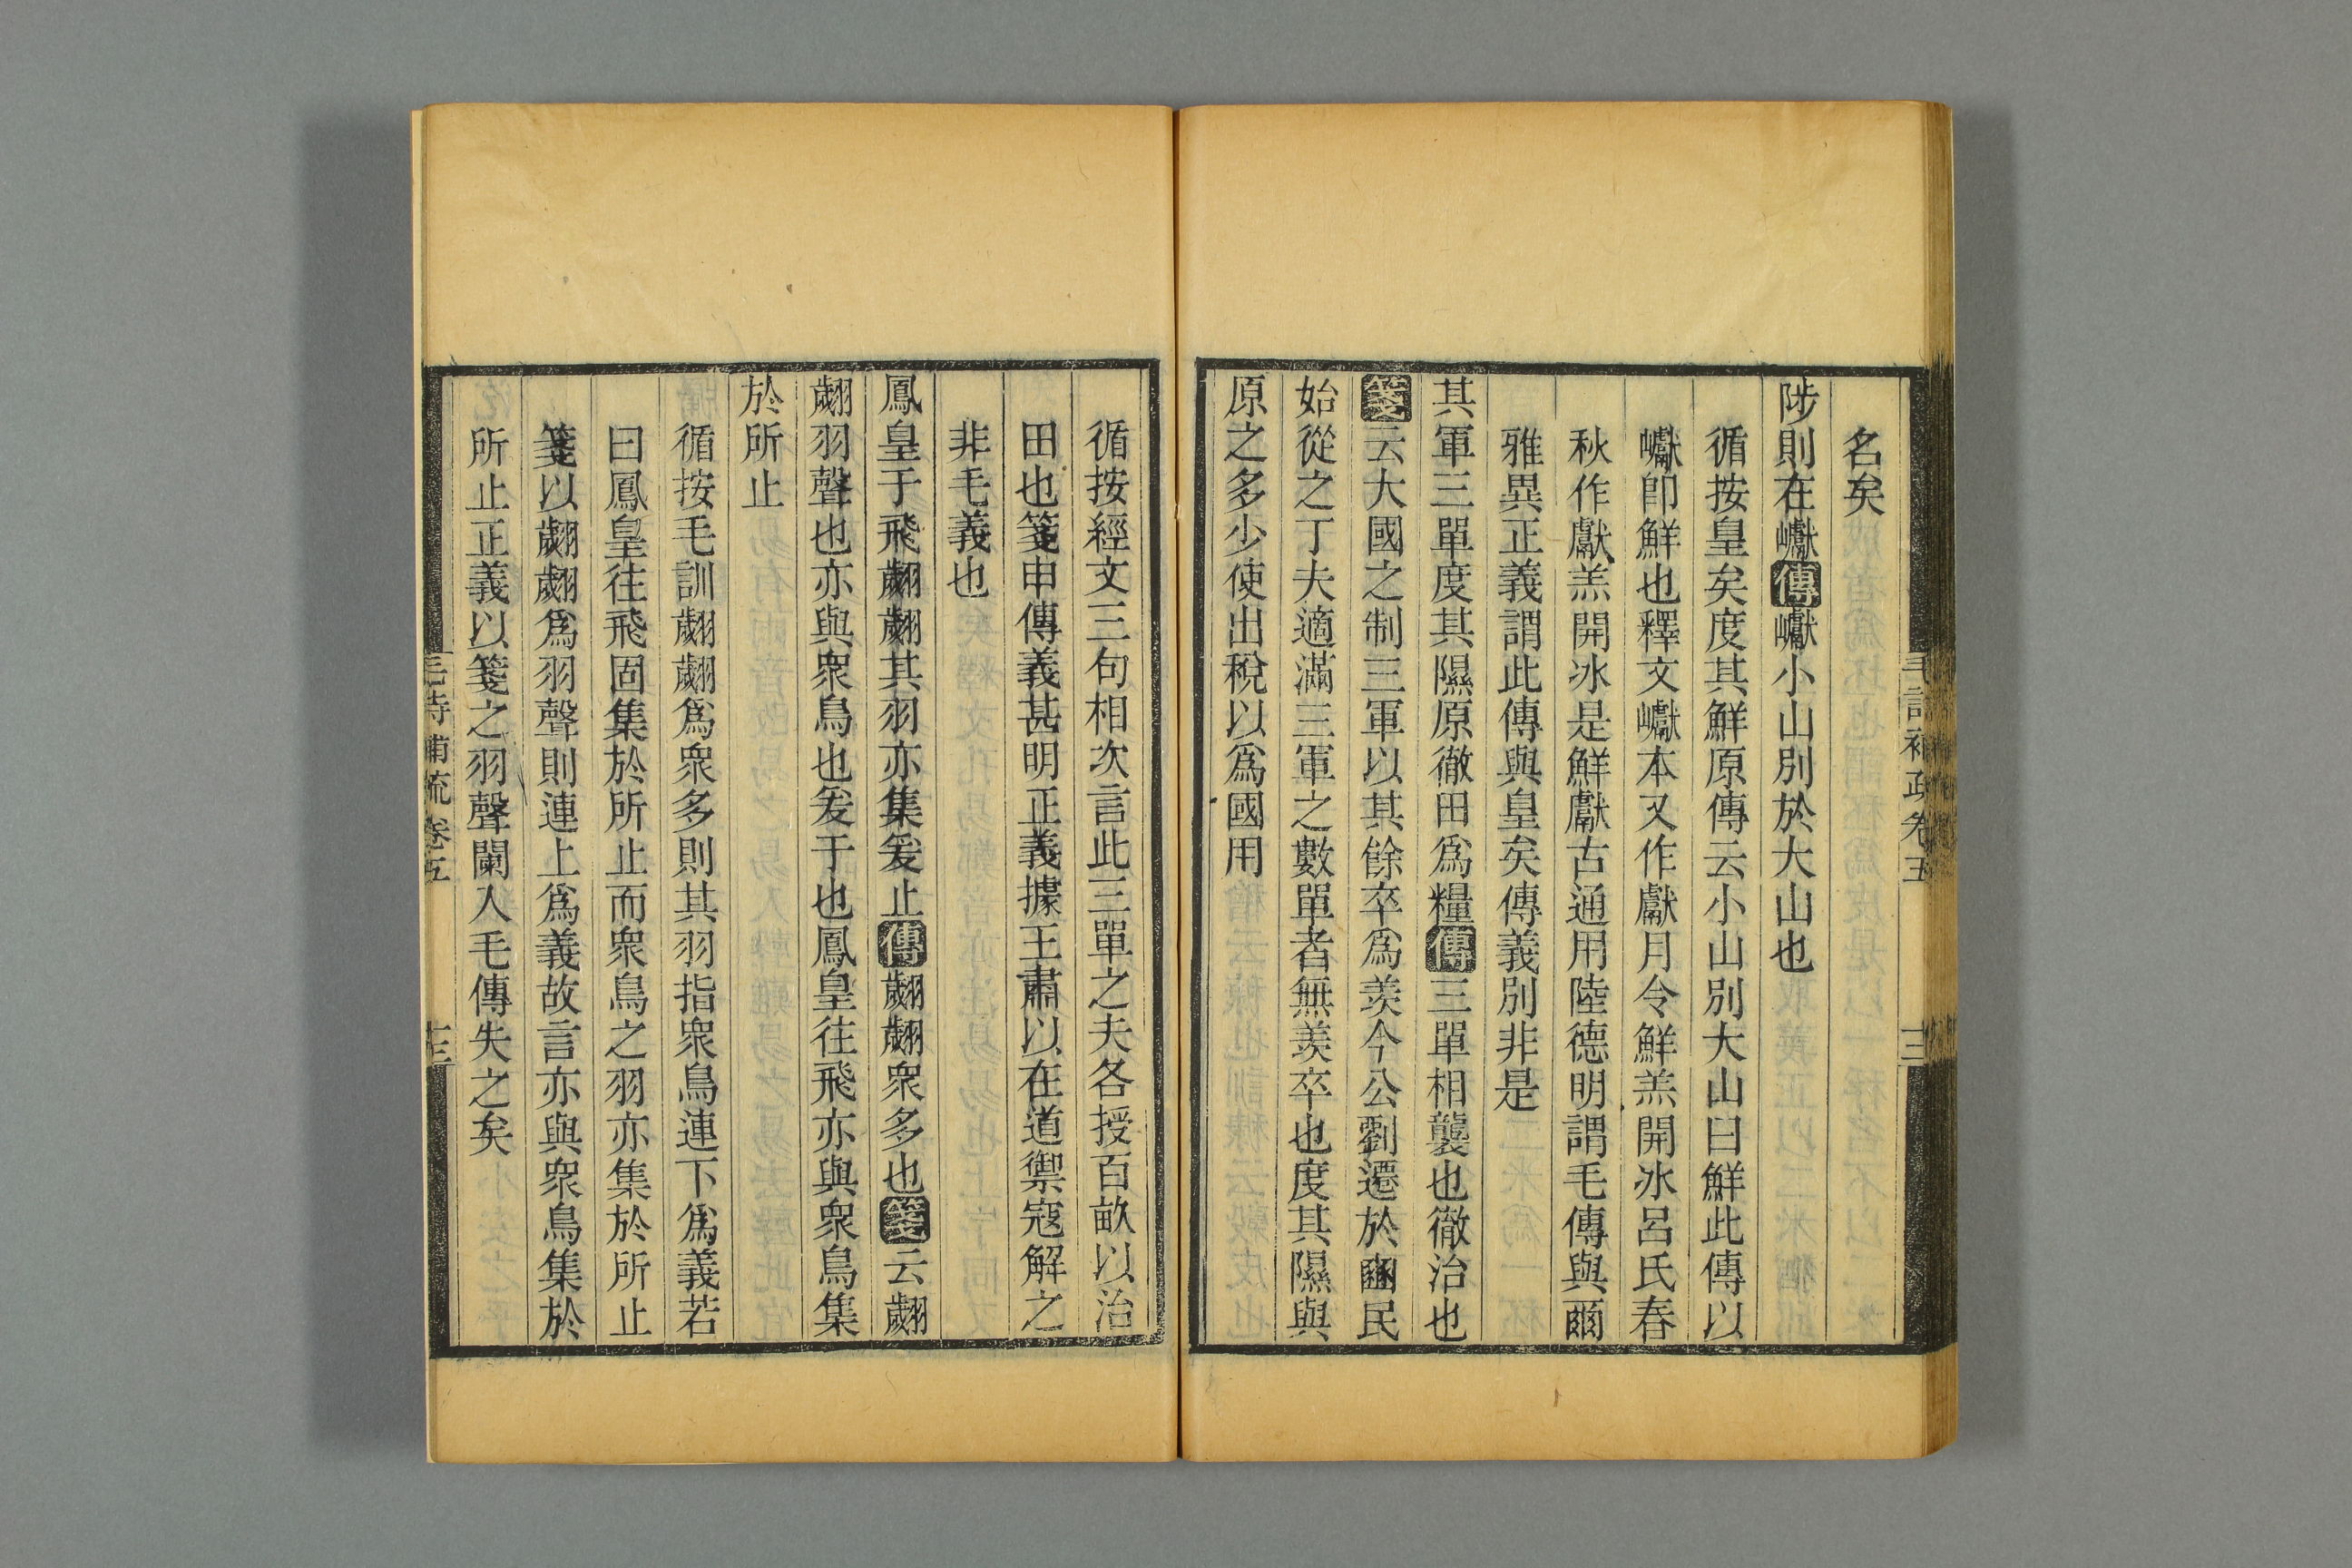 名矣
陟則在巘傳巘小山別於大山也
循按皇矣度其鮮原傳云小山別大山曰鮮此傳以
巘卽鮮也釋文巘本又作獻月令鮮羔開冰呂氏春
秋作獻羔開冰是鮮獻古通用陸德明謂毛傳與爾
雅異正義謂此傳與皇矣傳義別非是
其軍三單度其隰原徹田爲糧傳三單相襲也徹治也
箋云大國之制三軍以其餘卒爲羨今公劉遷於豳民
始從之丁夫適滿三軍之數單者無羨卒也度其隰與
原之多少使出稅以爲國用
毛詩補疏卷五
循按經文三句相次言此三單之夫各授百畝以治
田也箋申傳義甚明正義據王肅以在道禦寇解之
非毛義也
鳳皇于飛翽翽其羽亦集爰止傳翽翽衆多也箋云翽
翽羽聲也亦與衆鳥也爰于也鳳皇往飛亦與衆鳥集
於所止
循按毛訓翽翽爲衆多則其羽指衆鳥連下爲義若
曰鳳皇往飛固集於所止而衆鳥之羽亦集於所止
箋以翽翽爲羽聲則連上爲義故言亦與衆鳥集於
所止正義以箋之羽聲闌入毛傳失之矣
毛詩補疏卷五
十三